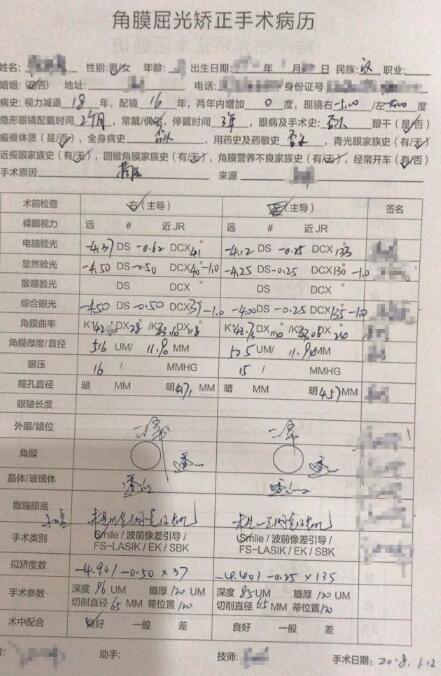 角膜屈光矫正手术病历
姓名: 性别:男/女 年龄: 出生日期: 年 月 日 民族:汉 职业:
婚姻:(是/否) 地址: 电话: 身份证号
病史:视力减退 18 年,配镜 16 年,两年内增加 0 度,现镜右-5.00 /左
隐形眼镜配戴时间 常戴/偶戴,停戴时间 3年,眼病及手术史: 否认 眼干(是/否)
瘢痕体质(是/否),全身病史 否认 ,用药史及药敏史 否认 ,青光眼家族史(有/无)
近视眼家族史(有/无),圆锥角膜家族史(有/无),角膜营养不良家族史(有/无),经常开车(有/否)
手术原因 来源
术前检查 右(主导) 左(主导) 签名
裸眼视力 远 # 近JR 远 # 近JR
电脑验光 -4.37 DS -0.62 DCX 41° -4.12 DS -0.25 DCX 133°
显然验光 -4.50 DS -0.50 DCX 40°-1.0 -4.25 DS -0.25 DCX 130°-1.0
散瞳验光 DS DCX ° DS DCX °
综合眼光 -4.50 DS -0.50 DCX 37°-1.0 -4.00 DS -0.25 DCX 135-1.0
角膜曲率
角膜厚度/直径 516 UM/ 11.90 MM 505 UM/ 11.90 MM
眼压 16 / MMHG 15 / MMHG
瞳孔直径 暗 MM 明 4.71 MM 暗 MM 明 4.57 MM
眼轴长度
外眼/眼位
角膜
晶体/玻璃体
散瞳眼底
手术类别 Smile / 波前像差引导 / Smile / 波前像差引导 /
FS-LASIK / EK / SBK FS-LASIK / EK / SBK
拟矫度数 -4.90/-0.50×37 -4.40/-0.25×135
手术参数 深度 96 UM 瓣厚 120 UM 深度 85 UM 瓣厚 120 UM
切削直径 65 MM 蒂位置 120 切削直径 65 MM 蒂位置 120
术中配合 良好 一般 差 良好 一般 差
助手: 技师: 手术日期: 2018.1.12